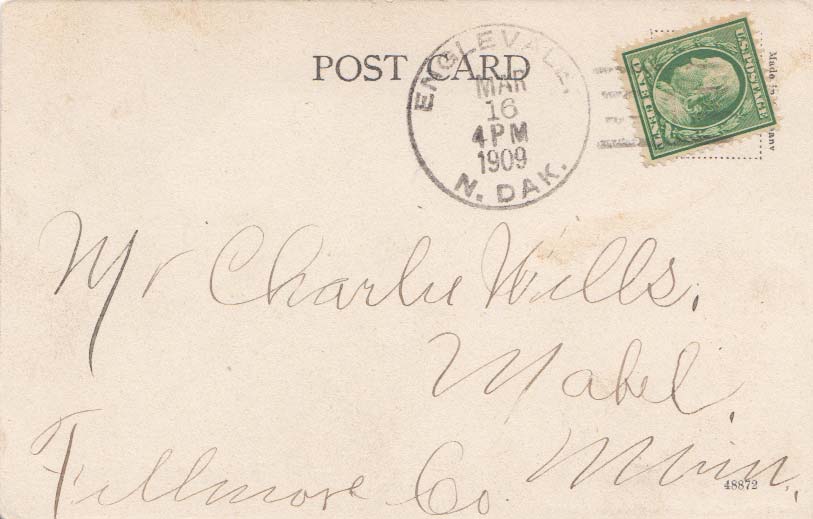 POST CARD
ENGLEVALE,
MAR
16
4 PM
1909
N. DAK.
U.S. POSTAGE
ONE CENT
Made in
any
Mr Charlie Wills.
Mabel,
Fillmore Co. Minn.
48872